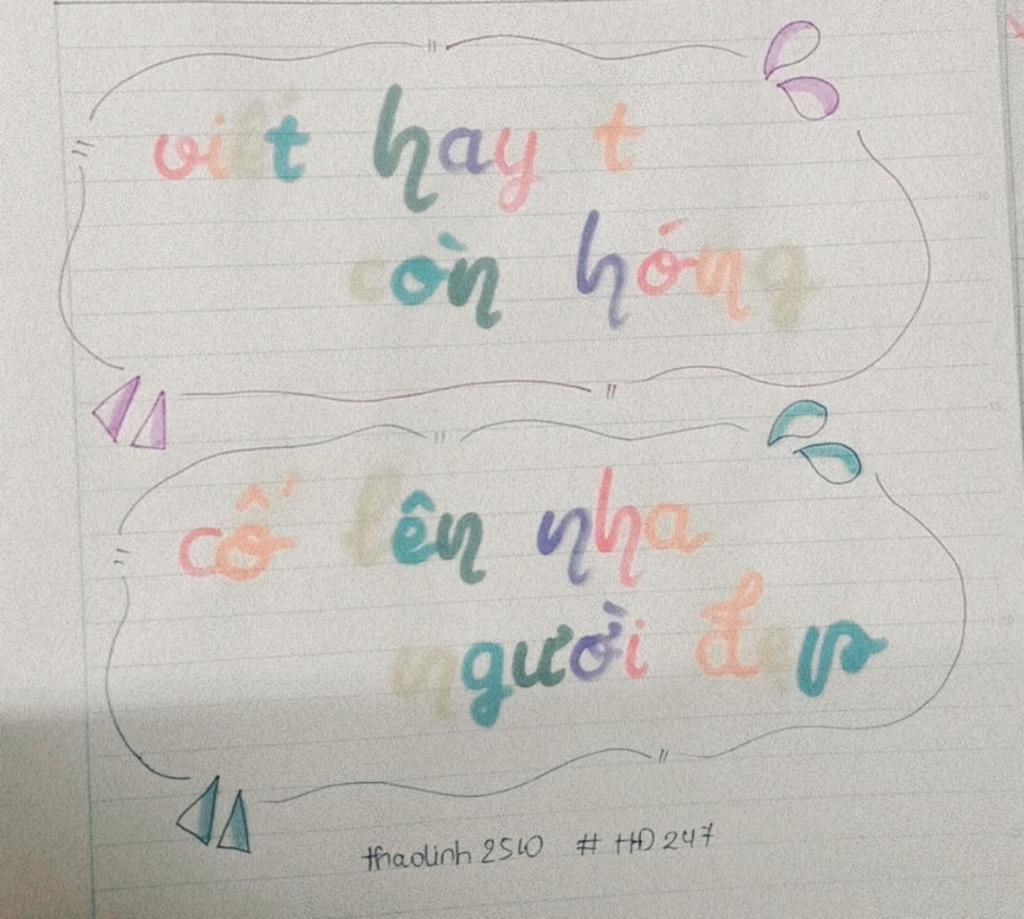 viết hay t
còn hóng
cố lên nha
người đẹp
thaolinh2510 #HD247